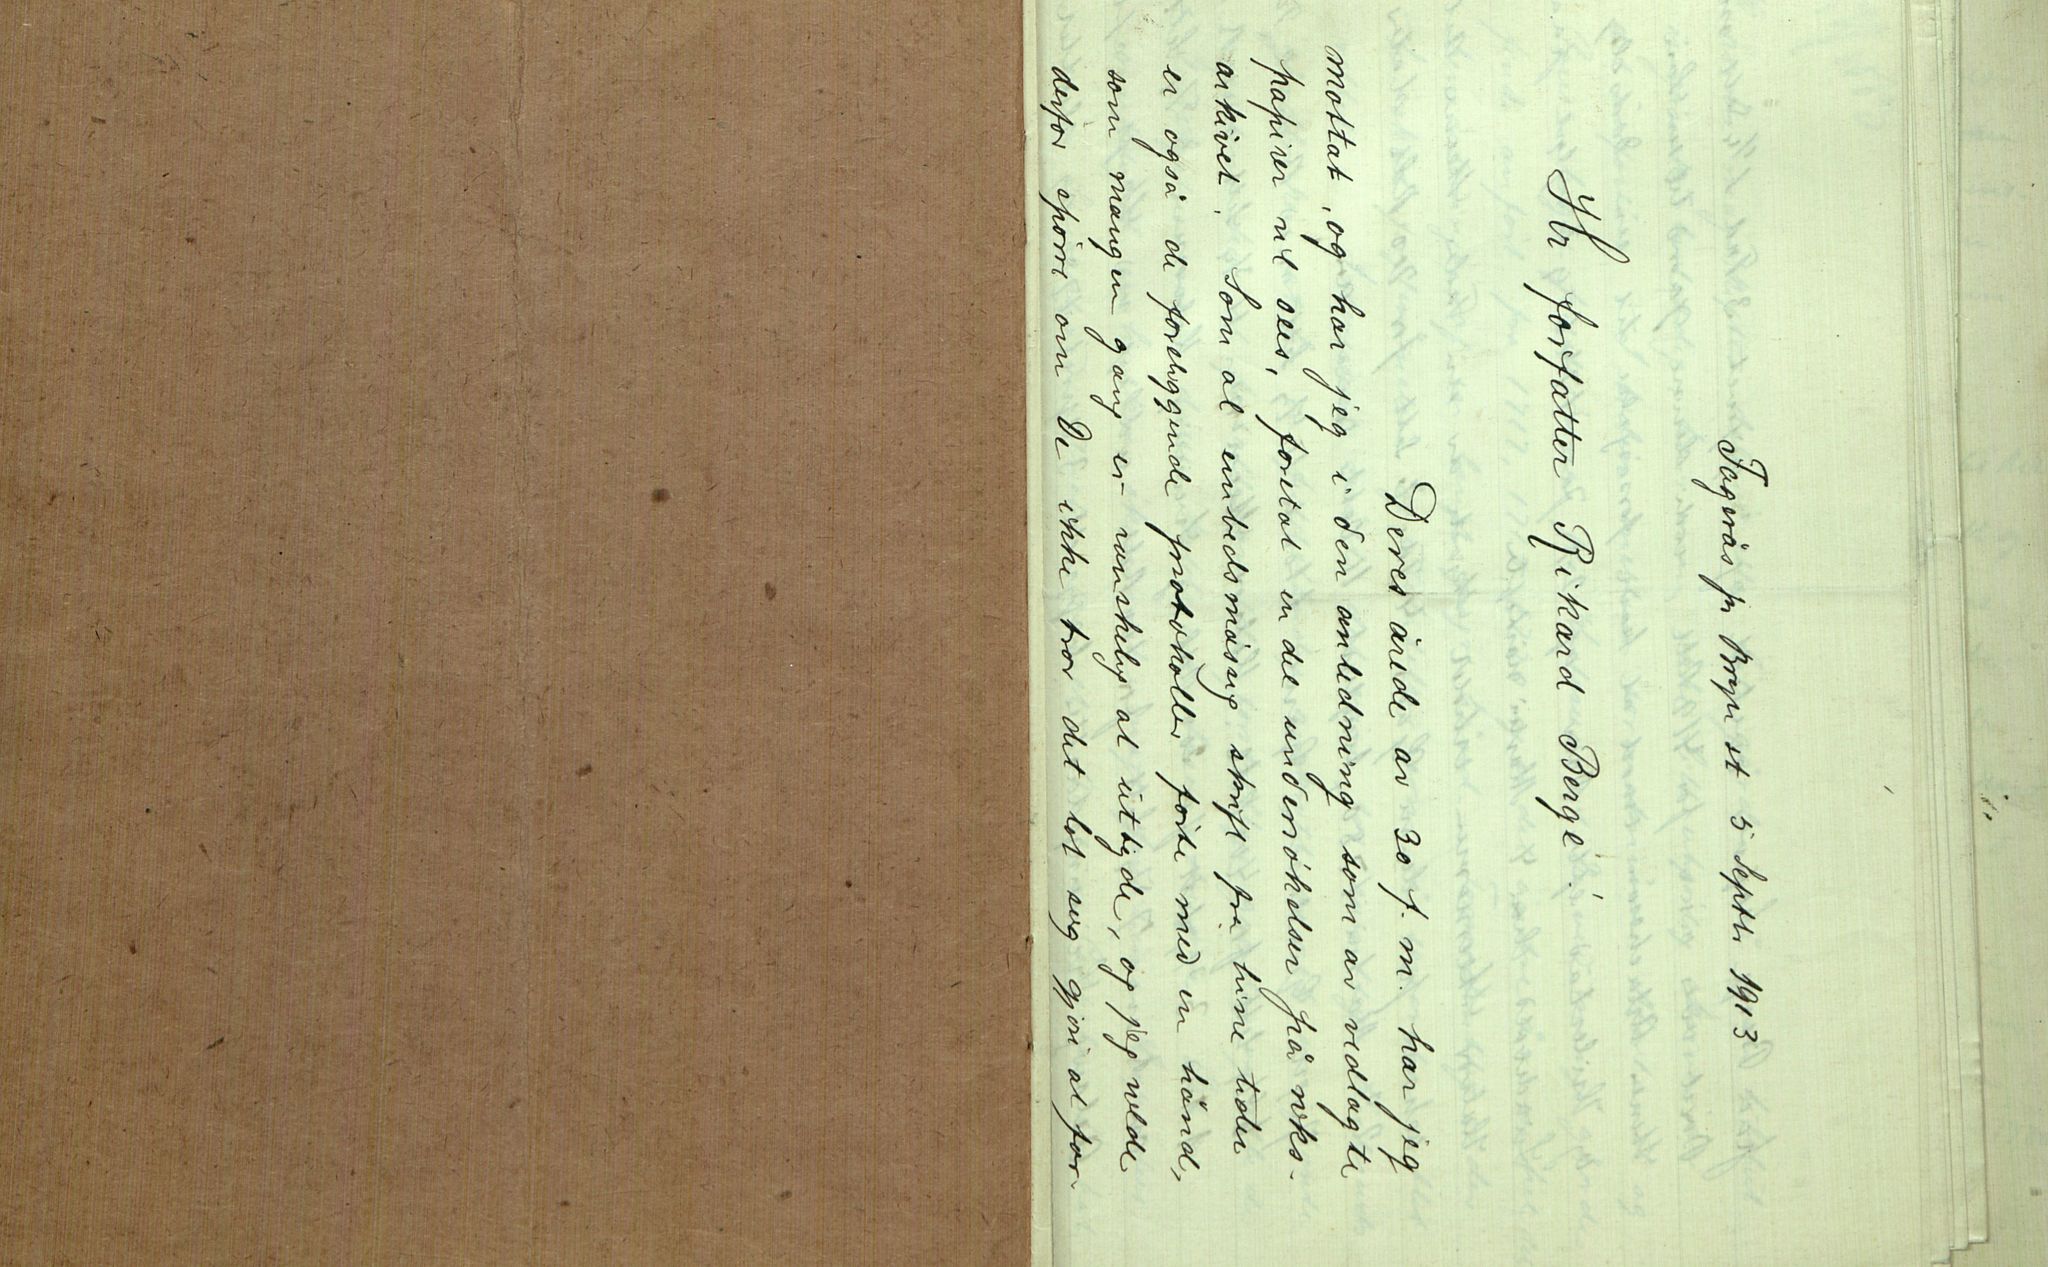 Fagerås pr Bryn st 5 Septb. 1913
Hr forfatter Rikard Berge!
Deres ærede av 30 f. m. har jeg
mottat, og har jeg i den anledning som av vedlagte
papirer vil sees, foretat en del undersökelser på riks-
arkivet. Som al embedsmässig skrift fra hine tider
er også de foreliggende protokoller förte med en hånd,
som mangen gang er vanskelig at uttyde, og jeg vilde
derfor spörre om De ikke tror det lot seg gjöre at for-